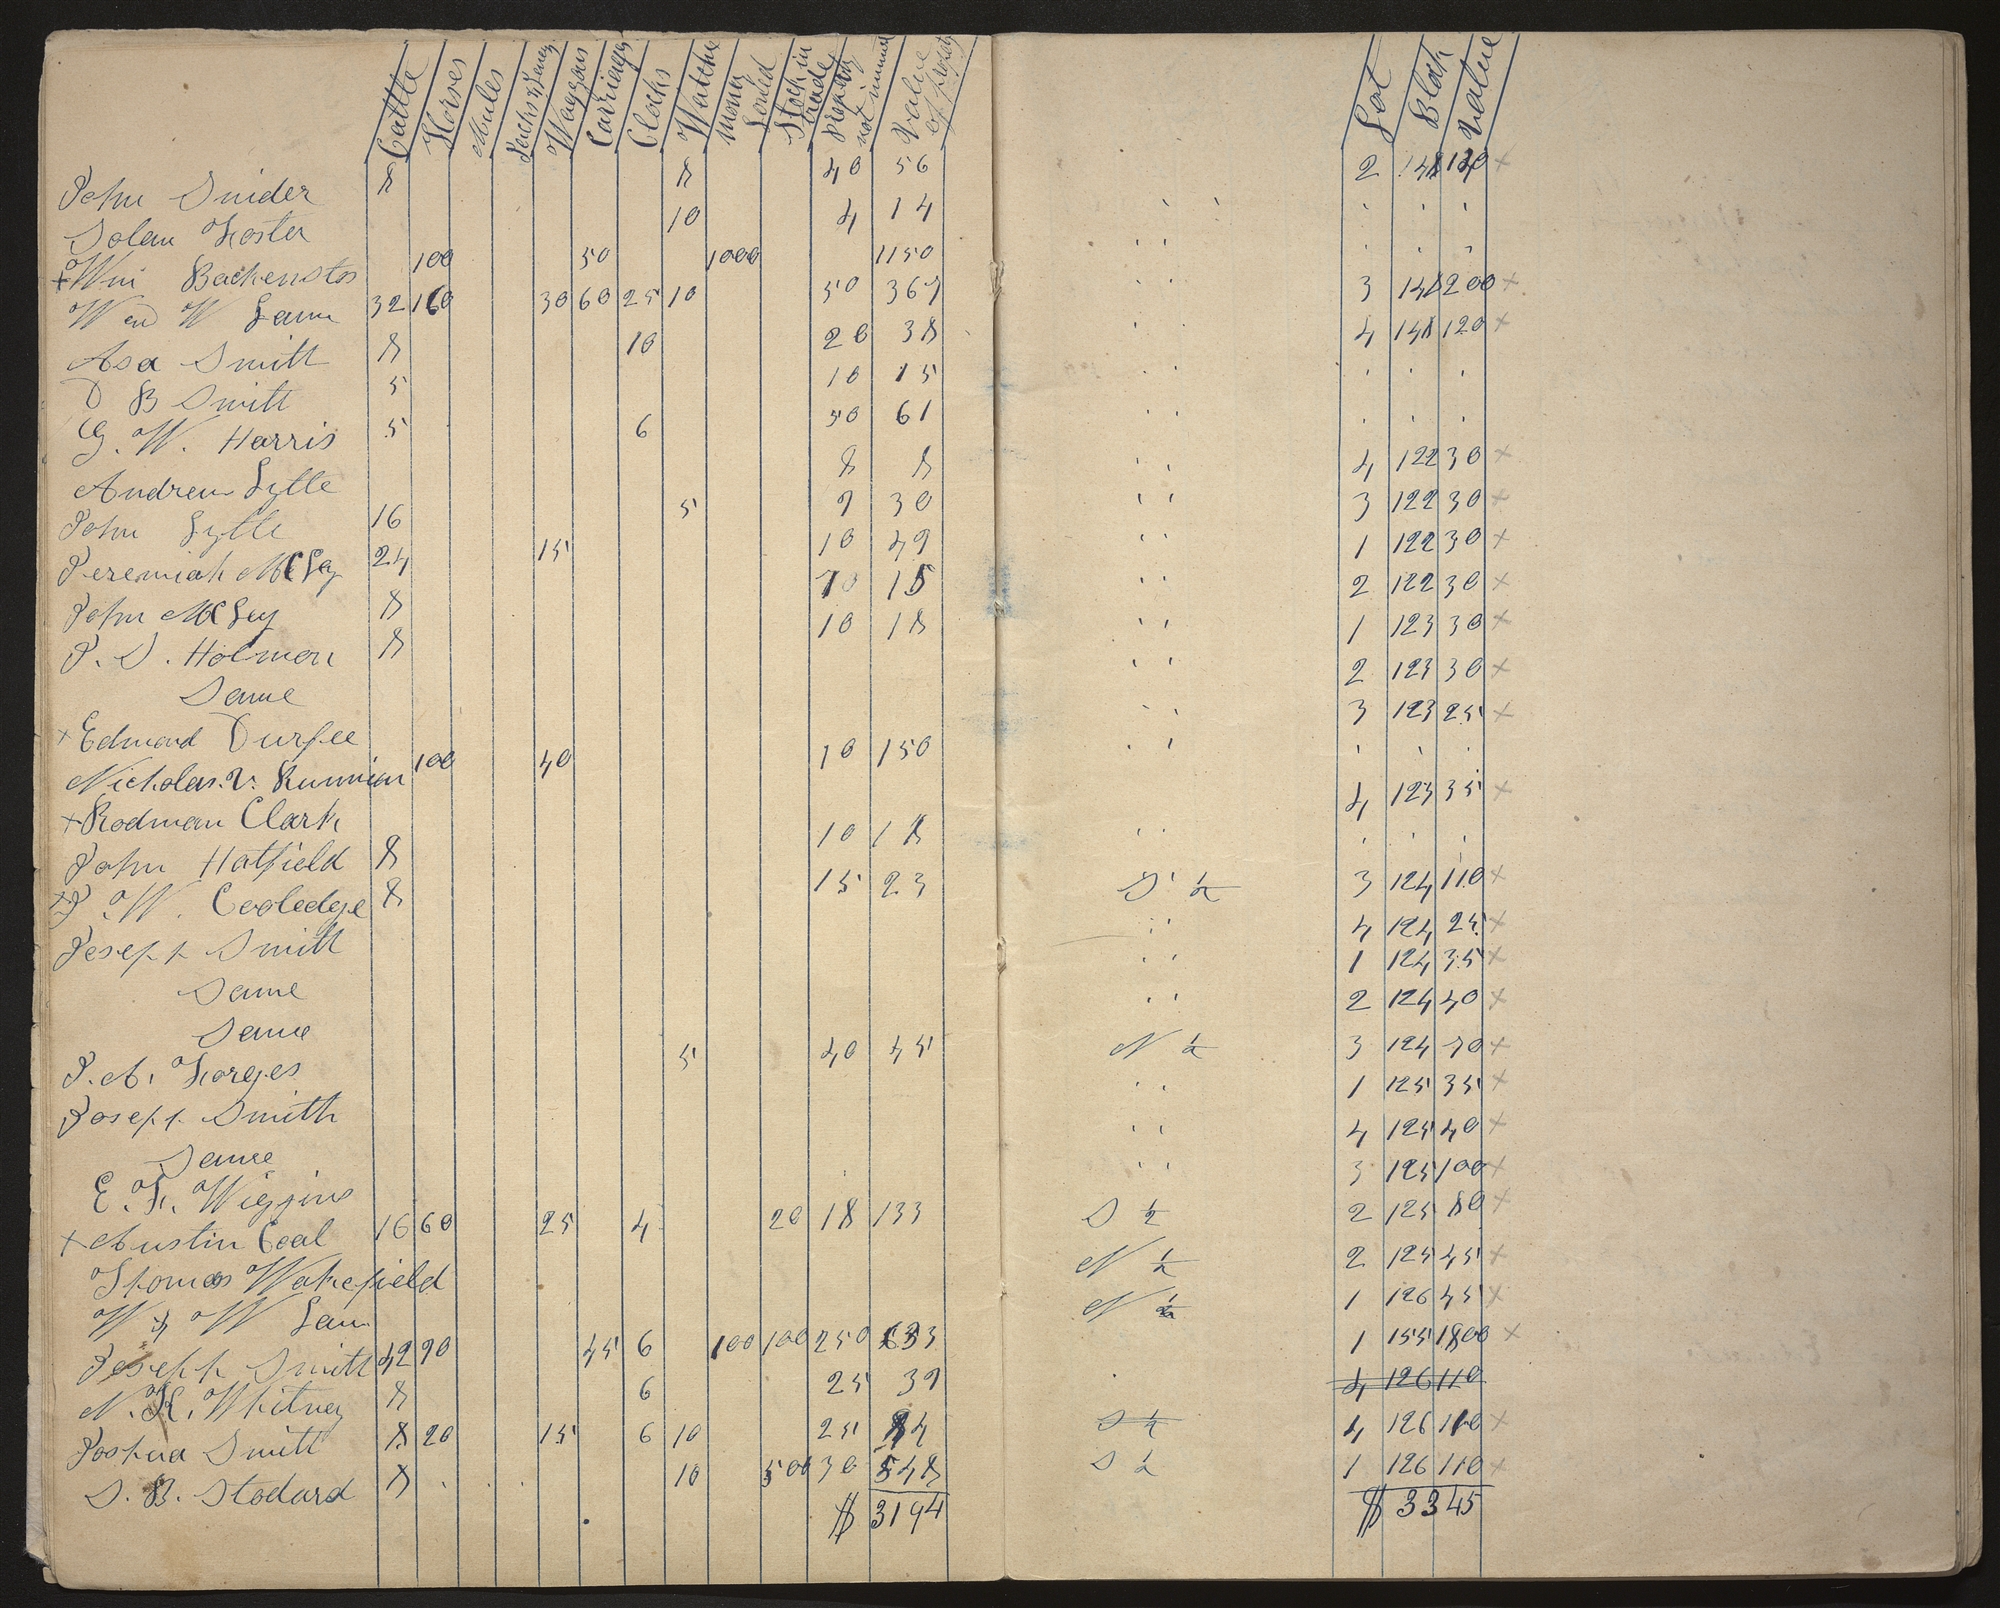 Cattle Horses Mules Waggons Carriages Clocks Watches Mony Loned Stock in trade Property not inumed Value of proprty Lot Block Value
John Snider 8 8 40 56 2 148 120 x
Solan Foster 10 4 14
+ Wm Backenstos 100 50 1000 1150
Wm W Laww 32 160 30 60 25 10 50 367 3 148 200 x
Asa Smith 8 10 20 38 4 148 120 x
D B Smith 5 10 15
G. W. Harris 5 6 50 61
Andrew Lytle 8 8 4 122 30 x
John Lytle 16 5 9 30 3 122 30 x
Jeremiah McLey 24 15 10 49 1 122 30 x
John McLey 8 10 18 2 122 30 x
J. S. Holman 8 10 18 1 123 30 x
Same 2 123 30 x
x Edmond Durfee 3 123 25 x
Nicholas. V. Runnion 100 40 10 150
+ Rodman Clark 4 123 35 x
John Hatfield 8 10 18
J. W. Cooledge 8 15 23 S 1/2 3 124 110 x
Joseph Smith 4 124 25 x
Same 1 124 35 x
Same 2 124 40 x
P. A. Forges 5 40 45 N 1/2 3 124 70 x
Joseph Smith 1 125 35 x
Same 4 125 40 x
E. F. Wiggins 3 125 100 x
+ Austin Coal 16 60 25 4 20 18 133 S 1/2 2 125 80 x
Thomas Wakefield N 1/2 2 125 45 x
W & W Law N 1/2 1 126 45 x
Joseph Smith 42 90 45 6 100 100 250 633 1 155 1800 x
N. K. Whitney 8 6 25 39 4 126 110
Joshua Smith 8 20 15 6 10 25 84 S 1/2 4 126 110 x
S. B. Stodard 8 10 500 30 548 S 1/2 1 126 110 x
$ 3194 $ 3345